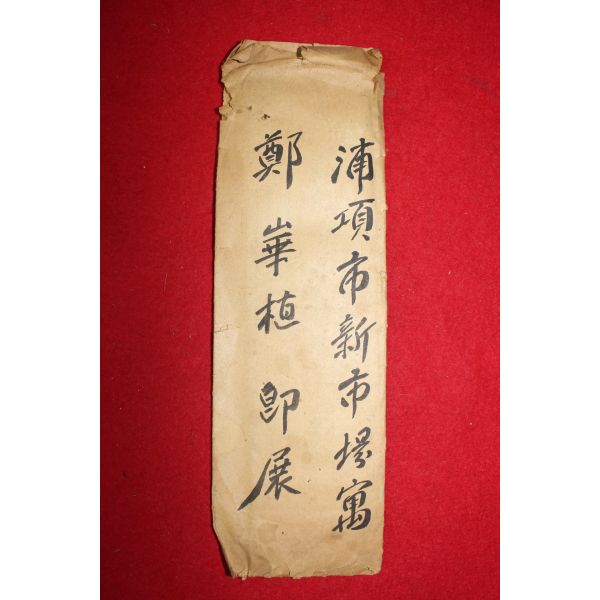 浦項市新市場寓
鄭崋植 即展